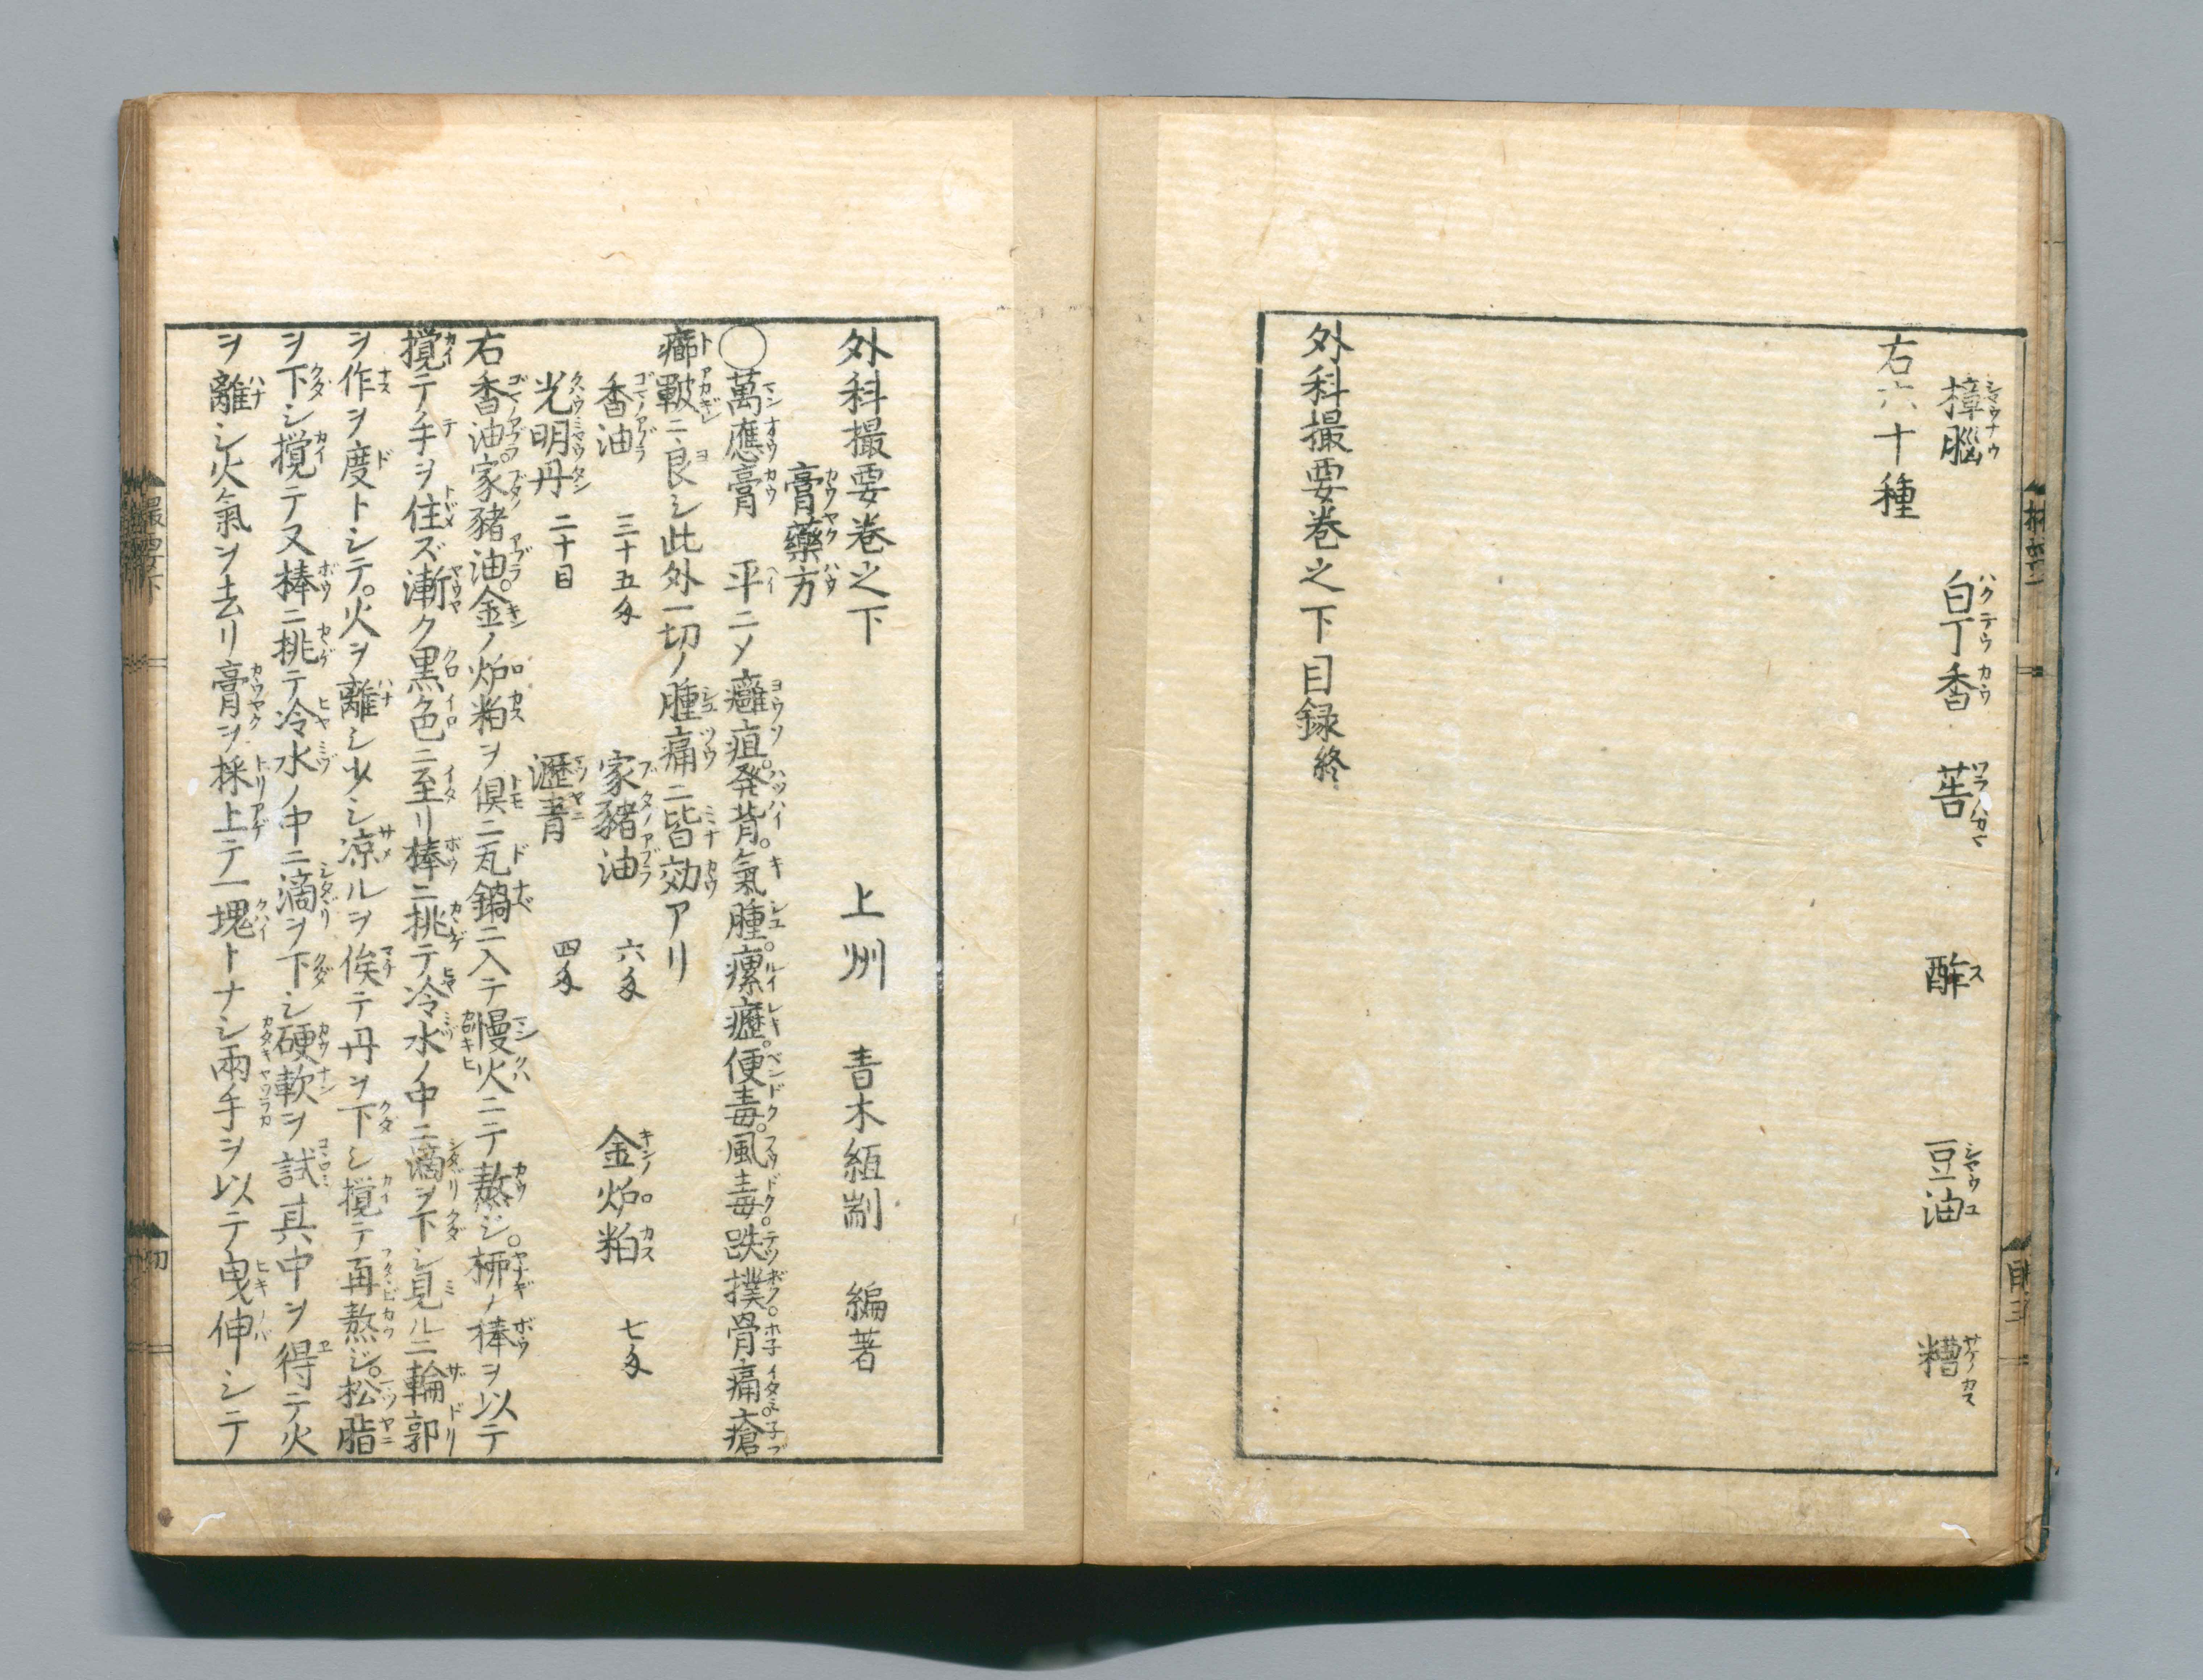 樟腦 白丁香 菩 酢 豆油 糟
右六十種
外科撮要巻之下目録終
外科撮要巻之下 上州 青木絙剬 編著
膏藥方
○萬應膏 平ニメ癰疽。発背。氣腫。瘰癧。便毒。風毒。跌撲。骨痛。瘡
癤皸ニ良シ此外一切ノ腫痛ニ皆効アリ
香油 三十五匁 家豬油 六匁 金炉粕 七匁
光明丹 二十目 瀝青 四匁
右香油。家豬油。金ノ炉粕ヲ倶ニ瓦鍋ニ入テ慢火ニテ熬ジ。栁ノ棒ヲ以テ
攪テ手ヲ住ズ漸ク黒色ニ至リ棒ニ挑テ冷水ノ中ニ滴ヲ下シ見ルニ輪郭
ヲ作ヲ度トシテ。火ヲ離シ少シ凉ルヲ俟テ丹ヲ下シ攪テ再熬ジ。松脂
ヲ下シ攪テ又棒ニ挑テ冷水ノ中ニ滴ヲ下シ硬軟ヲ試其中ヲ得テ火
ヲ離シ火氣ヲ去リ膏ヲ採上テ一塊トナシ兩手ヲ以テ曳伸シテ
撮要下